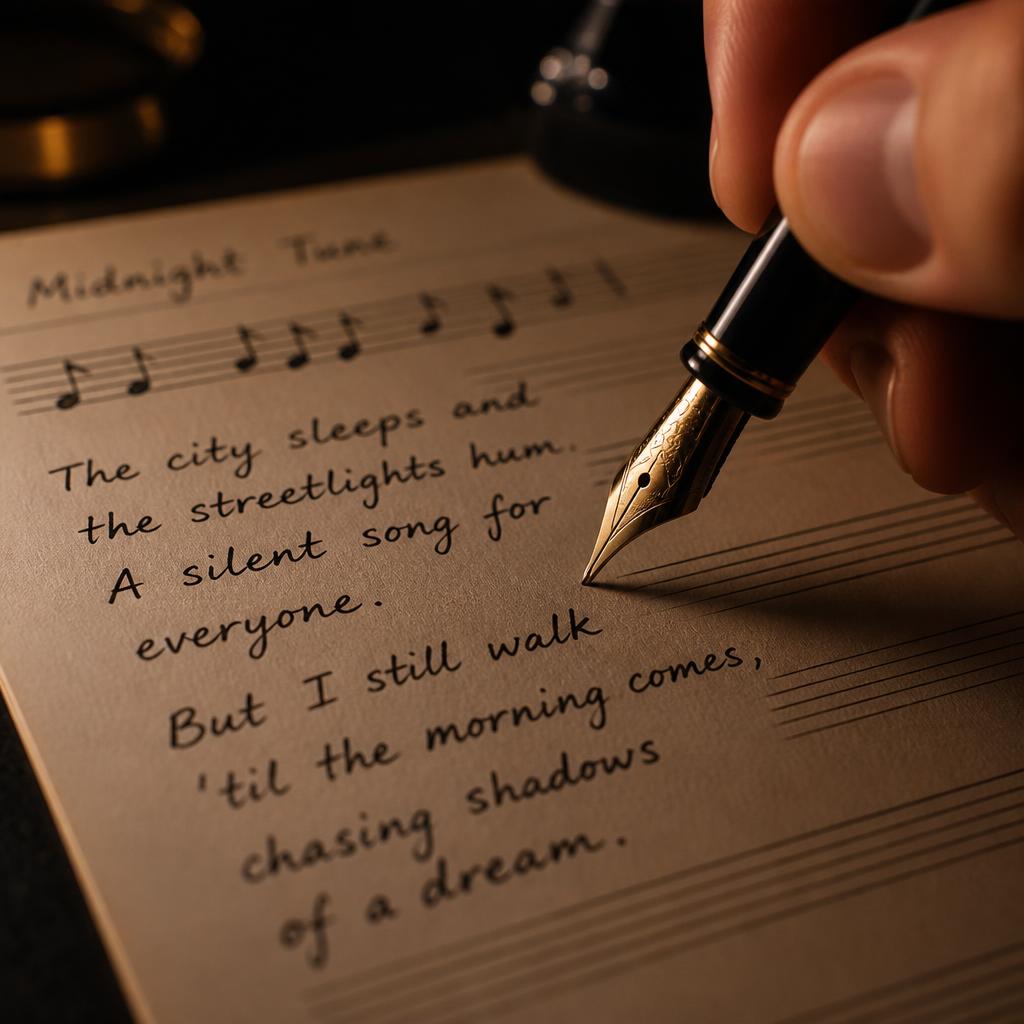 Midnight Tune
The city sleeps and
the streetlights hum.
A silent song for
everyone.
But I still walk
'til the morning comes,
chasing shadows
of a dream.